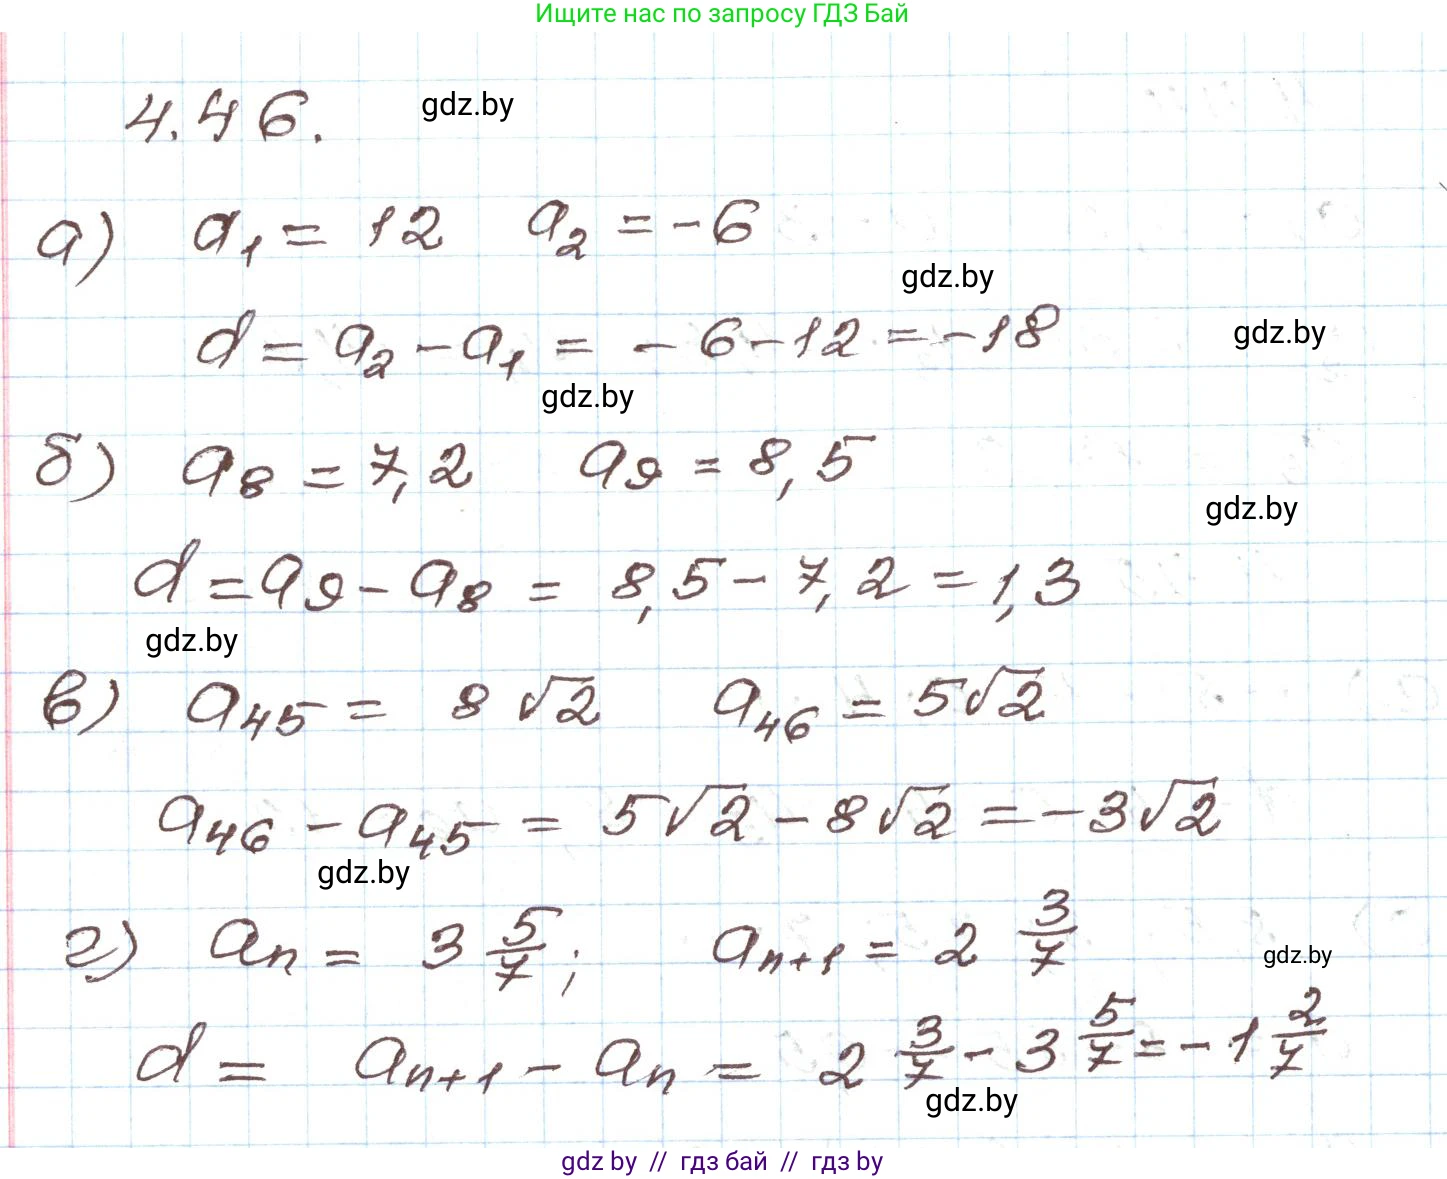 Ищите нас по запросу ГДЗ Бай
4.46. gdz.by
а) a₁ = 12 a₂ = -6
gdz.by
d = a₂ - a₁ = - 6 - 12 = -18 gdz.by
gdz.by
б) a₈ = 7,2 a₉ = 8,5
gdz.by
d = a₉ - a₈ = 8,5 - 7,2 = 1,3
gdz.by
в) a₄₅ = 8√2 a₄₆ = 5√2
a₄₆ - a₄₅ = 5√2 - 8√2 = -3√2
gdz.by
г) aₙ = 3 5/7; aₙ₊₁ = 2 3/7 gdz.by
d = aₙ₊₁ - aₙ = 2 3/7 - 3 5/7 = -1 2/7
gdz.by
gdz by // гдз бай // гдз by